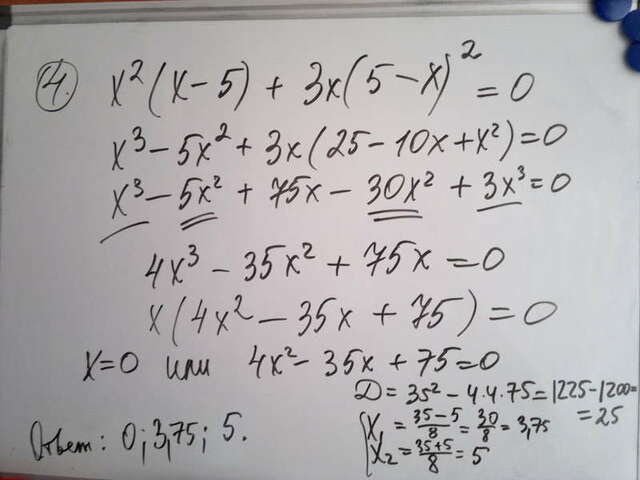 4. x²(x-5) + 3x(5-x)² = 0
x³ - 5x² + 3x(25 - 10x + x²) = 0
x³ - 5x² + 75x - 30x² + 3x³ = 0
4x³ - 35x² + 75x = 0
x(4x² - 35x + 75) = 0
x=0 или 4x² - 35x + 75 = 0
D = 35² - 4·4·75 = 1225 - 1200 =
= 25
x₁ = (35-5)/8 = 30/8 = 3,75
x₂ = (35+5)/8 = 5
Ответ: 0; 3,75; 5.